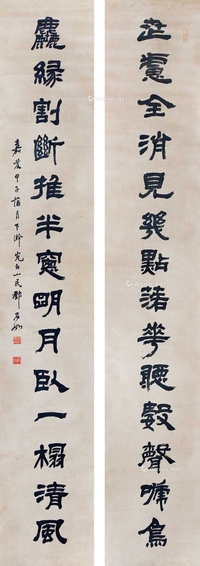 世慮全消見幾點落花聽數聲啼鳥
塵緣割斷推半窗明月臥一榻清風
嘉慶甲子蒲月下澣完白山民鄧石如